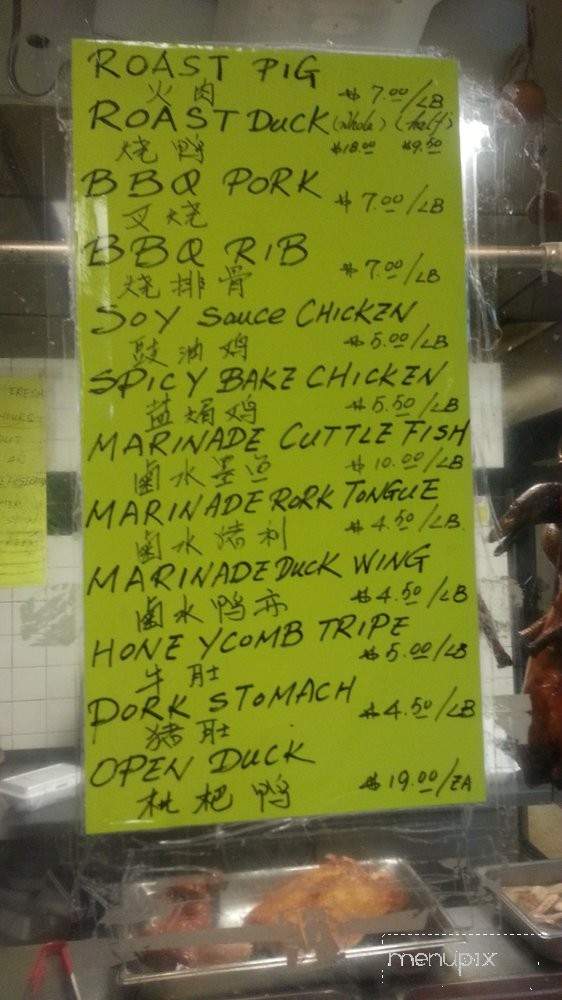 ROAST PIG
火肉 $7.00/LB
ROAST DUCK (whole) (half)
烧鸭 $18.00 $9.50
BBQ PORK
叉烧 $7.00/LB
BBQ RIB
烧排骨 $7.00/LB
SOY Sauce CHICKEN
豉油鸡 $5.00/LB
SPICY BAKE CHICKEN
盐焗鸡 $5.50/LB
MARINADE CUTTLE FISH
卤水墨鱼 $10.00/LB
MARINADE PORK TONGUE
卤水猪利 $4.50/LB
MARINADE DUCK WING
卤水鸭亦 $4.50/LB
HONEYCOMB TRIPE
牛肚 $5.00/LB
PORK STOMACH
猪肚 $4.50/LB
OPEN DUCK
枇杷鸭 $19.00/EA
FRESH
menupix